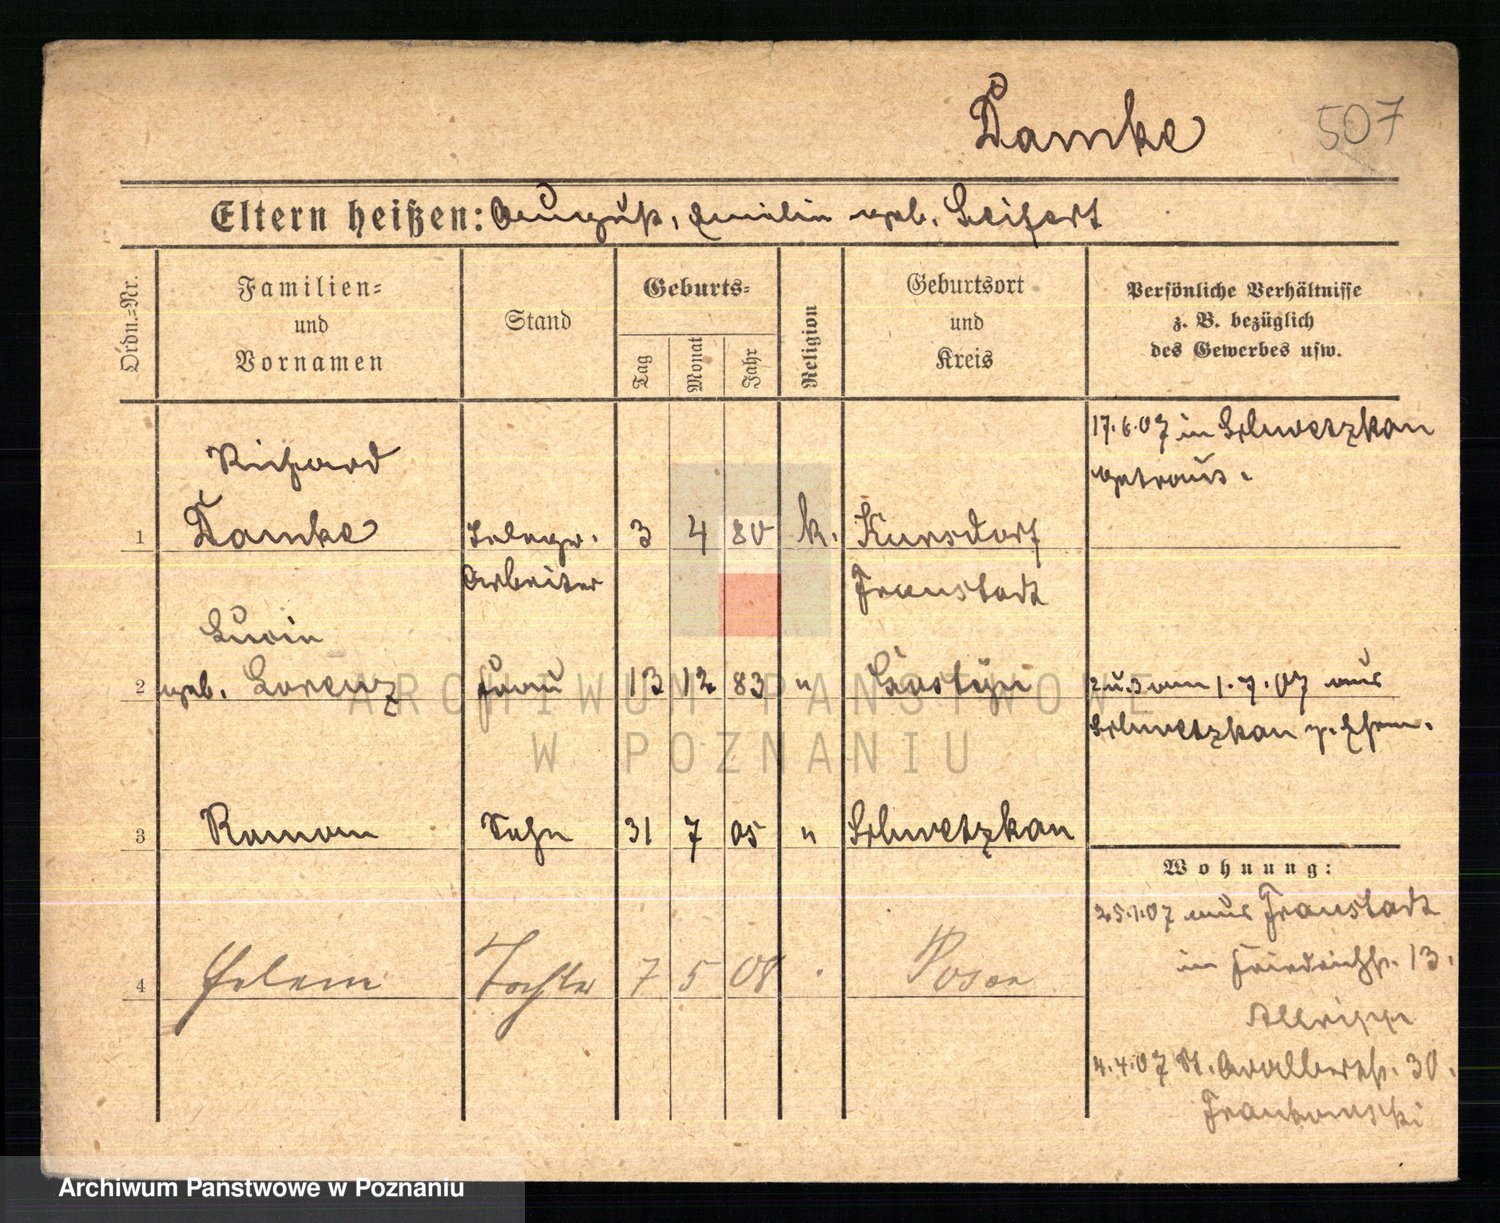 Damke 507
Eltern heißen: August, Emilie geb. Seifert
Ordn.=Nr.
Familien=
und
Vornamen
Stand
Geburts=
Tag
Monat
Jahr
Religion
Geburtsort
und
Kreis
Persönliche Verhältnisse
z. B. bezüglich
des Gewerbes usw.
17.6.07 in Schwetzkau
getraut.
Richard
1 Damke Telegr. 3 4 80 k. Kursdorf
Arbeiter Fraustadt
Lucie
2 geb. Lorenz Frau 13 12 83 "
2 u. 3 am 1.7.07 aus
Schwetzkau z. Ehem.
3 Roman Sohn 31 7 05 " Schwetzkau
Wohnung:
25.1.07 aus Fraustadt
in Friedrichstr. 13.
4 Helene Tochter 7 5 08 Posen
4.4.07 St. Adalbertstr. 30.
ARCHIWUM PAŃSTWOWE
W POZNANIU
Archiwum Państwowe w Poznaniu